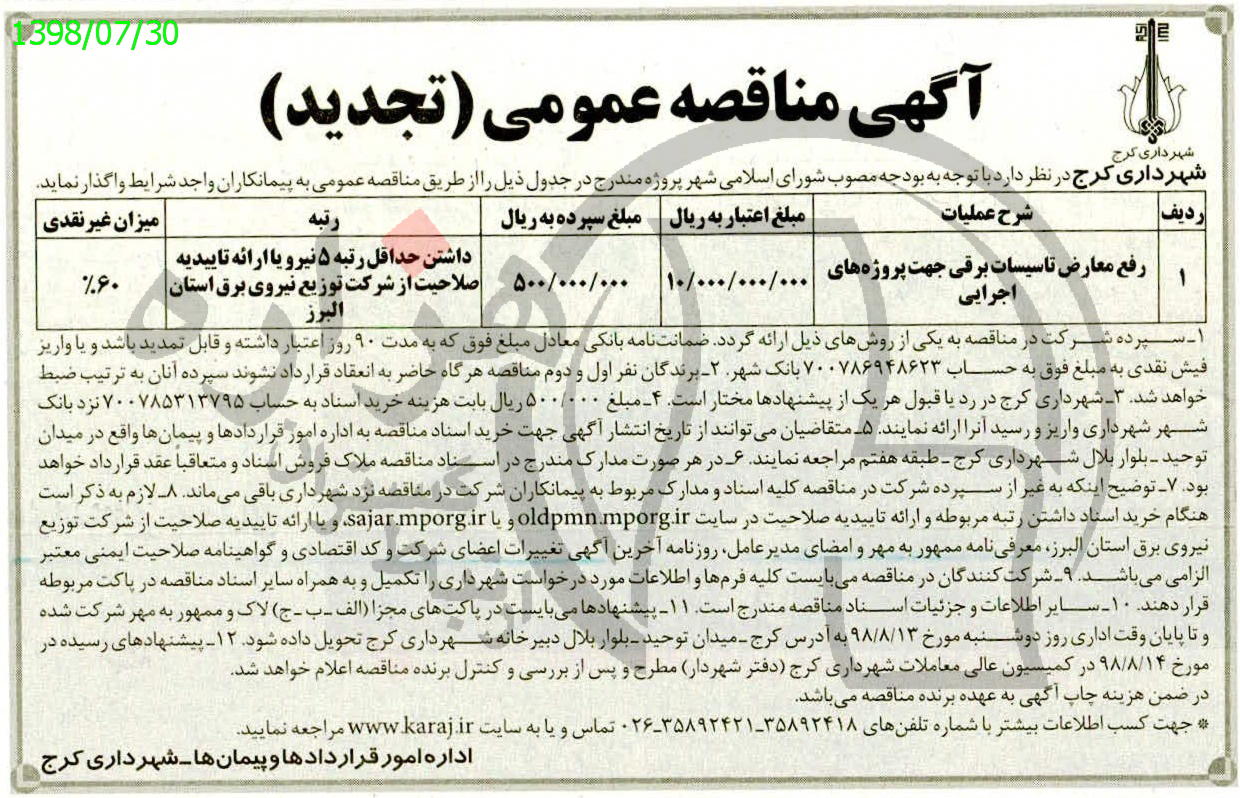 1398/07/30
شهرداری کرج
آگهی مناقصه عمومی (تجدید)
شهرداری کرج در نظر دارد با توجه به بودجه مصوب شورای اسلامی شهر پروژه مندرج در جدول ذیل را از طریق مناقصه عمومی به پیمانکاران واجد شرایط واگذار نماید.
ردیف شرح عملیات مبلغ اعتبار به ریال مبلغ سپرده به ریال رتبه میزان غیر نقدی
۱ رفع معارض تاسیسات برقی جهت پروژه‌های اجرایی ۱۰/۰۰۰/۰۰۰/۰۰۰ ۵۰۰/۰۰۰/۰۰۰ داشتن حداقل رتبه ۵ نیرو یا ارائه تاییدیه صلاحیت از شرکت توزیع نیروی برق استان البرز ۶۰٪
۱ـ سپرده شرکت در مناقصه به یکی از روش‌های ذیل ارائه گردد. ضمانت‌نامه بانکی معادل مبلغ فوق که به مدت ۹۰ روز اعتبار داشته و قابل تمدید باشد و یا واریز
فیش نقدی به مبلغ فوق به حساب ۷۰۰۷۸۶۹۴۸۶۲۳ بانک شهر. ۲ـ برندگان نفر اول و دوم مناقصه هرگاه حاضر به انعقاد قرارداد نشوند سپرده آنان به ترتیب ضبط
خواهد شد. ۳ـ شهرداری کرج در رد یا قبول هر یک از پیشنهادها مختار است. ۴ـ مبلغ ۵۰۰/۰۰۰ ریال بابت هزینه خرید اسناد به حساب ۷۰۰۷۸۵۳۱۳۷۹۵ نزد بانک
شهر شهرداری واریز و رسید آنرا ارائه نمایند. ۵ـ متقاضیان می‌توانند از تاریخ انتشار آگهی جهت خرید اسناد مناقصه به اداره امور قراردادها و پیمان‌ها واقع در میدان
توحید ـ بلوار بلال شهرداری کرج ـ طبقه هفتم مراجعه نمایند. ۶ـ در هر صورت مدارک مندرج در اسناد مناقصه ملاک فروش اسناد و متعاقباً عقد قرارداد خواهد
بود. ۷ـ توضیح اینکه به غیر از سپرده شرکت در مناقصه کلیه اسناد و مدارک مربوط به پیمانکاران شرکت در مناقصه نزد شهرداری باقی می‌ماند. ۸ـ لازم به ذکر است
هنگام خرید اسناد داشتن رتبه مربوطه و ارائه تاییدیه صلاحیت در سایت oldpmn.mporg.ir و یا sajar.mporg.ir، و یا ارائه تاییدیه صلاحیت از شرکت توزیع
نیروی برق استان البرز، معرفی‌نامه ممهور به مهر و امضای مدیرعامل، روزنامه آخرین آگهی تغییرات اعضای شرکت و کد اقتصادی و گواهینامه صلاحیت ایمنی معتبر
الزامی می‌باشد. ۹ـ شرکت‌کنندگان در مناقصه می‌بایست کلیه فرم‌ها و اطلاعات مورد درخواست شهرداری را تکمیل و به همراه سایر اسناد مناقصه در پاکت مربوطه
قرار دهند. ۱۰ـ سایر اطلاعات و جزئیات اسناد مناقصه مندرج است. ۱۱ـ پیشنهادها می‌بایست در پاکت‌های مجزا (الف ـ ب ـ ج) لاک و ممهور به مهر شرکت شده
و تا پایان وقت اداری روز دوشنبه مورخ ۹۸/۸/۱۳ به آدرس کرج ـ میدان توحید ـ بلوار بلال دبیرخانه شهرداری کرج تحویل داده شود. ۱۲ـ پیشنهادهای رسیده در
مورخ ۹۸/۸/۱۴ در کمیسیون عالی معاملات شهرداری کرج (دفتر شهردار) مطرح و پس از بررسی و کنترل برنده مناقصه اعلام خواهد شد.
در ضمن هزینه چاپ آگهی به عهده برنده مناقصه می‌باشد.
* جهت کسب اطلاعات بیشتر با شماره تلفن‌های ۳۵۸۹۲۴۱۸ـ۳۵۸۹۲۴۲۱ـ۰۲۶ تماس و یا به سایت www.karaj.ir مراجعه نمایید.
اداره امور قراردادها و پیمان‌ها ـ شهرداری کرج